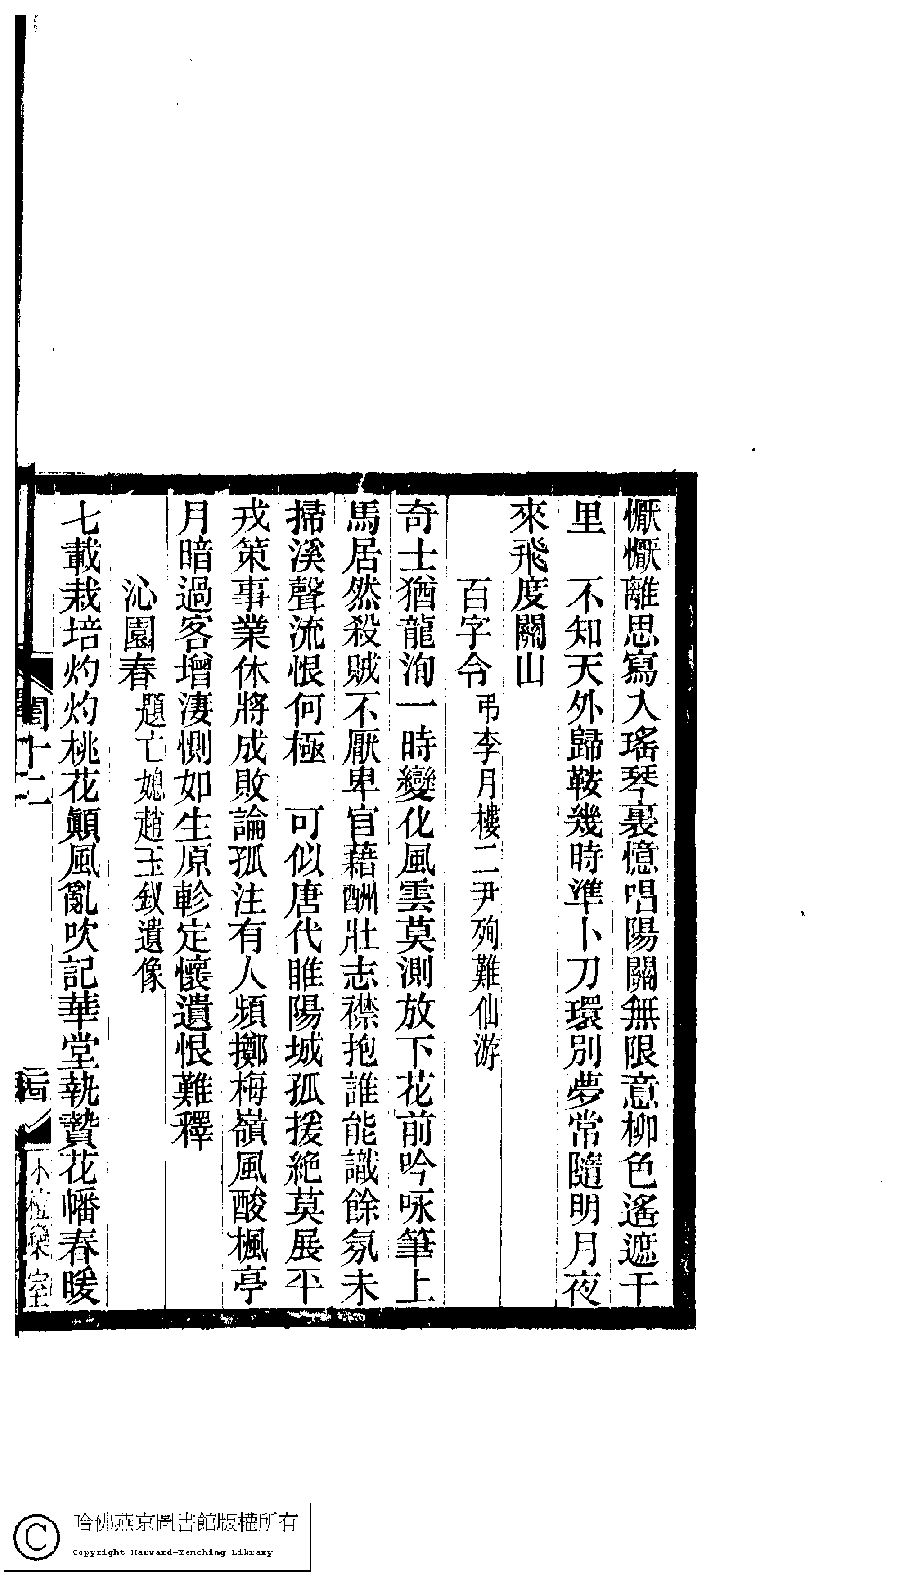 懨懨離思寫入瑤琴裏憶唱陽關無限意柳色遙遮千
里　不知天外歸鞍幾時準卜刀環別夢常隨明月夜
來飛度關山
百字令弔李月樓二尹殉難仙游
奇士猶龍洵一時變化風雲莫測放下花前吟咏筆上
馬居然殺賊不厭卑官藉酬壯志襟抱誰能識餘氛未
掃溪聲流恨何極　可似唐代睢陽城孤援絶莫展平
戎策事業休將成敗論孤注有人頻擲梅嶺風酸楓亭
月暗過客增淒惻如生原軫定懷遺恨難釋
沁園春題亡媳趙玉釵遺像
七載栽培灼灼桃花顛風亂吹記華堂執贄花幡春暖
閨十二
小檀欒室
哈佛燕京圖書館版權所有
Copyright Harvard-Yenching Library